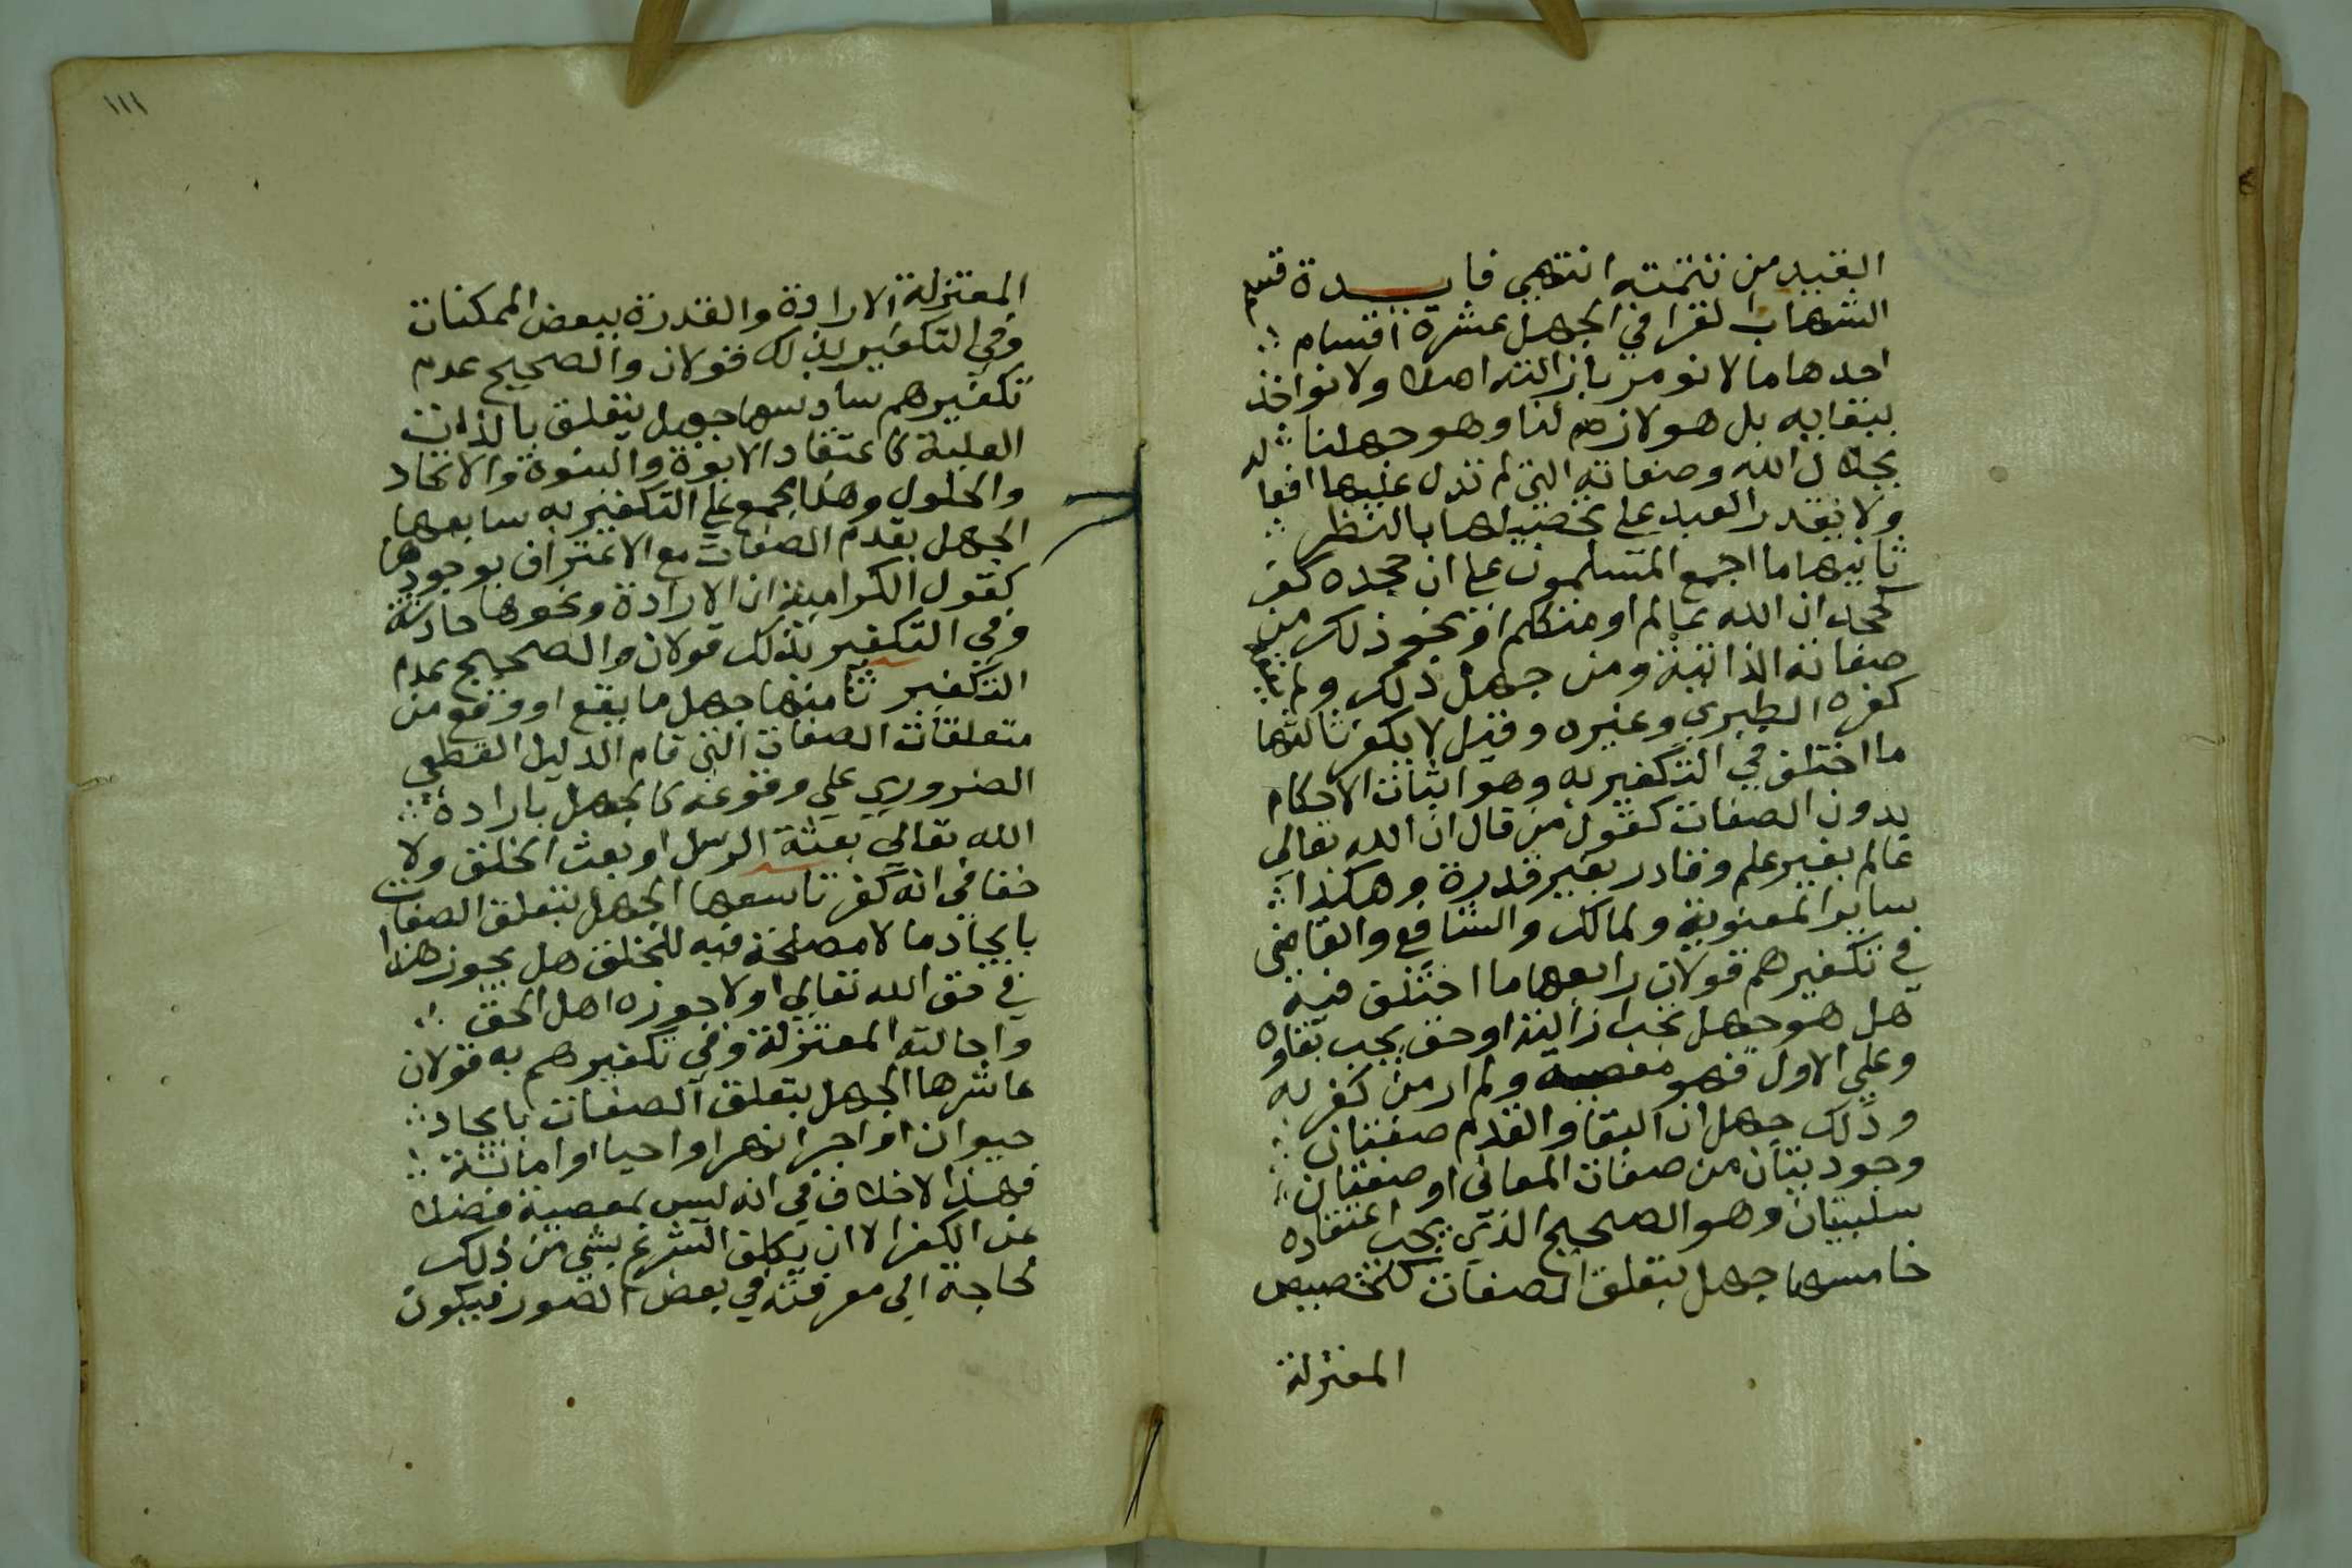 القبيد من تتمته انتهى فايدة قسم
الشهاب القرافي الجهل عشرة اقسام
احدها ما لا نومر بازالته اصلا ولا نواخذ
ببقايه بل هو لازم لنا وهو جهلنا
بجلال الله وصفاته التي لم تدل عليها افعاله
ولا يقدر العبد على تحصيلها بالنظر
ثانيها ما اجمع المسلمون على ان جحده كفر
كجحد ان الله عالم او متكلم او نحو ذلك من
صفاته الذاتية ومن جهل ذلك ولم
كفره الطبري وغيره وقيل لا يكفر ثالثها
ما اختلف في التكفير به وهو اثبات الاحكام
بدون الصفات كقول من قال ان الله تعالى
عالم بغير علم وقادر بغير قدرة وهكذا
ساير المعنوية ولمالك والشافعي والقاضي
في تكفيرهم قولان رابعها ما اختلف فيه
هل هو جهل تجب ازالته او حق يجب بقاوه
وعلى الاول فهو معصية ولم ار من كفر به
وذلك جهل ان البقا والقدم صفتان
وجوديتان من صفات المعاني او صفتان
سلبيتان وهو الصحيح الذي يجب اعتقاده
خامسها جهل بتعلق الصفات كتخصيص
المعتزلة
١١١
المعتزلة الارادة والقدرة ببعض الممكنات
وفي التكفير بذلك قولان والصحيح عدم
تكفيرهم سادسها جهل يتعلق بالذات
العلية كاعتقاد الابوة والبنوة والاتحاد
والحلول وهذا مجمع على التكفير به سابعها
الجهل بقدم الصفات مع الاعتراف بوجودها
كقول الكرامية ان الارادة ونحوها حادثة
وفي التكفير بذلك قولان والصحيح عدم
التكفير ثامنها جهل ما يقع او وقع من
متعلقات الصفات التي قام الدليل القطعي
الضروري على وقوعه كالجهل بارادة
الله تعالى بعثة الرسل او بعث الخلق ولا
خفا في انه كفر تاسعها الجهل بتعلق الصفات
بايجاد ما لا مصلحة فيه للخلق هل يجوز هذا
في حق الله تعالى او لا جوزه اهل الحق
واحالته المعتزلة وفي تكفيرهم به قولان
عاشرها الجهل بتعلق الصفات بايجاد
حيوان او اجرا نهر او احيا او اماتة
فهذا لا خلاف في انه ليس بمعصية فضلا
عن الكفر الا ان يكلف الشرع بشي من ذلك
لحاجة الى معرفته في بعض الصور فيكون